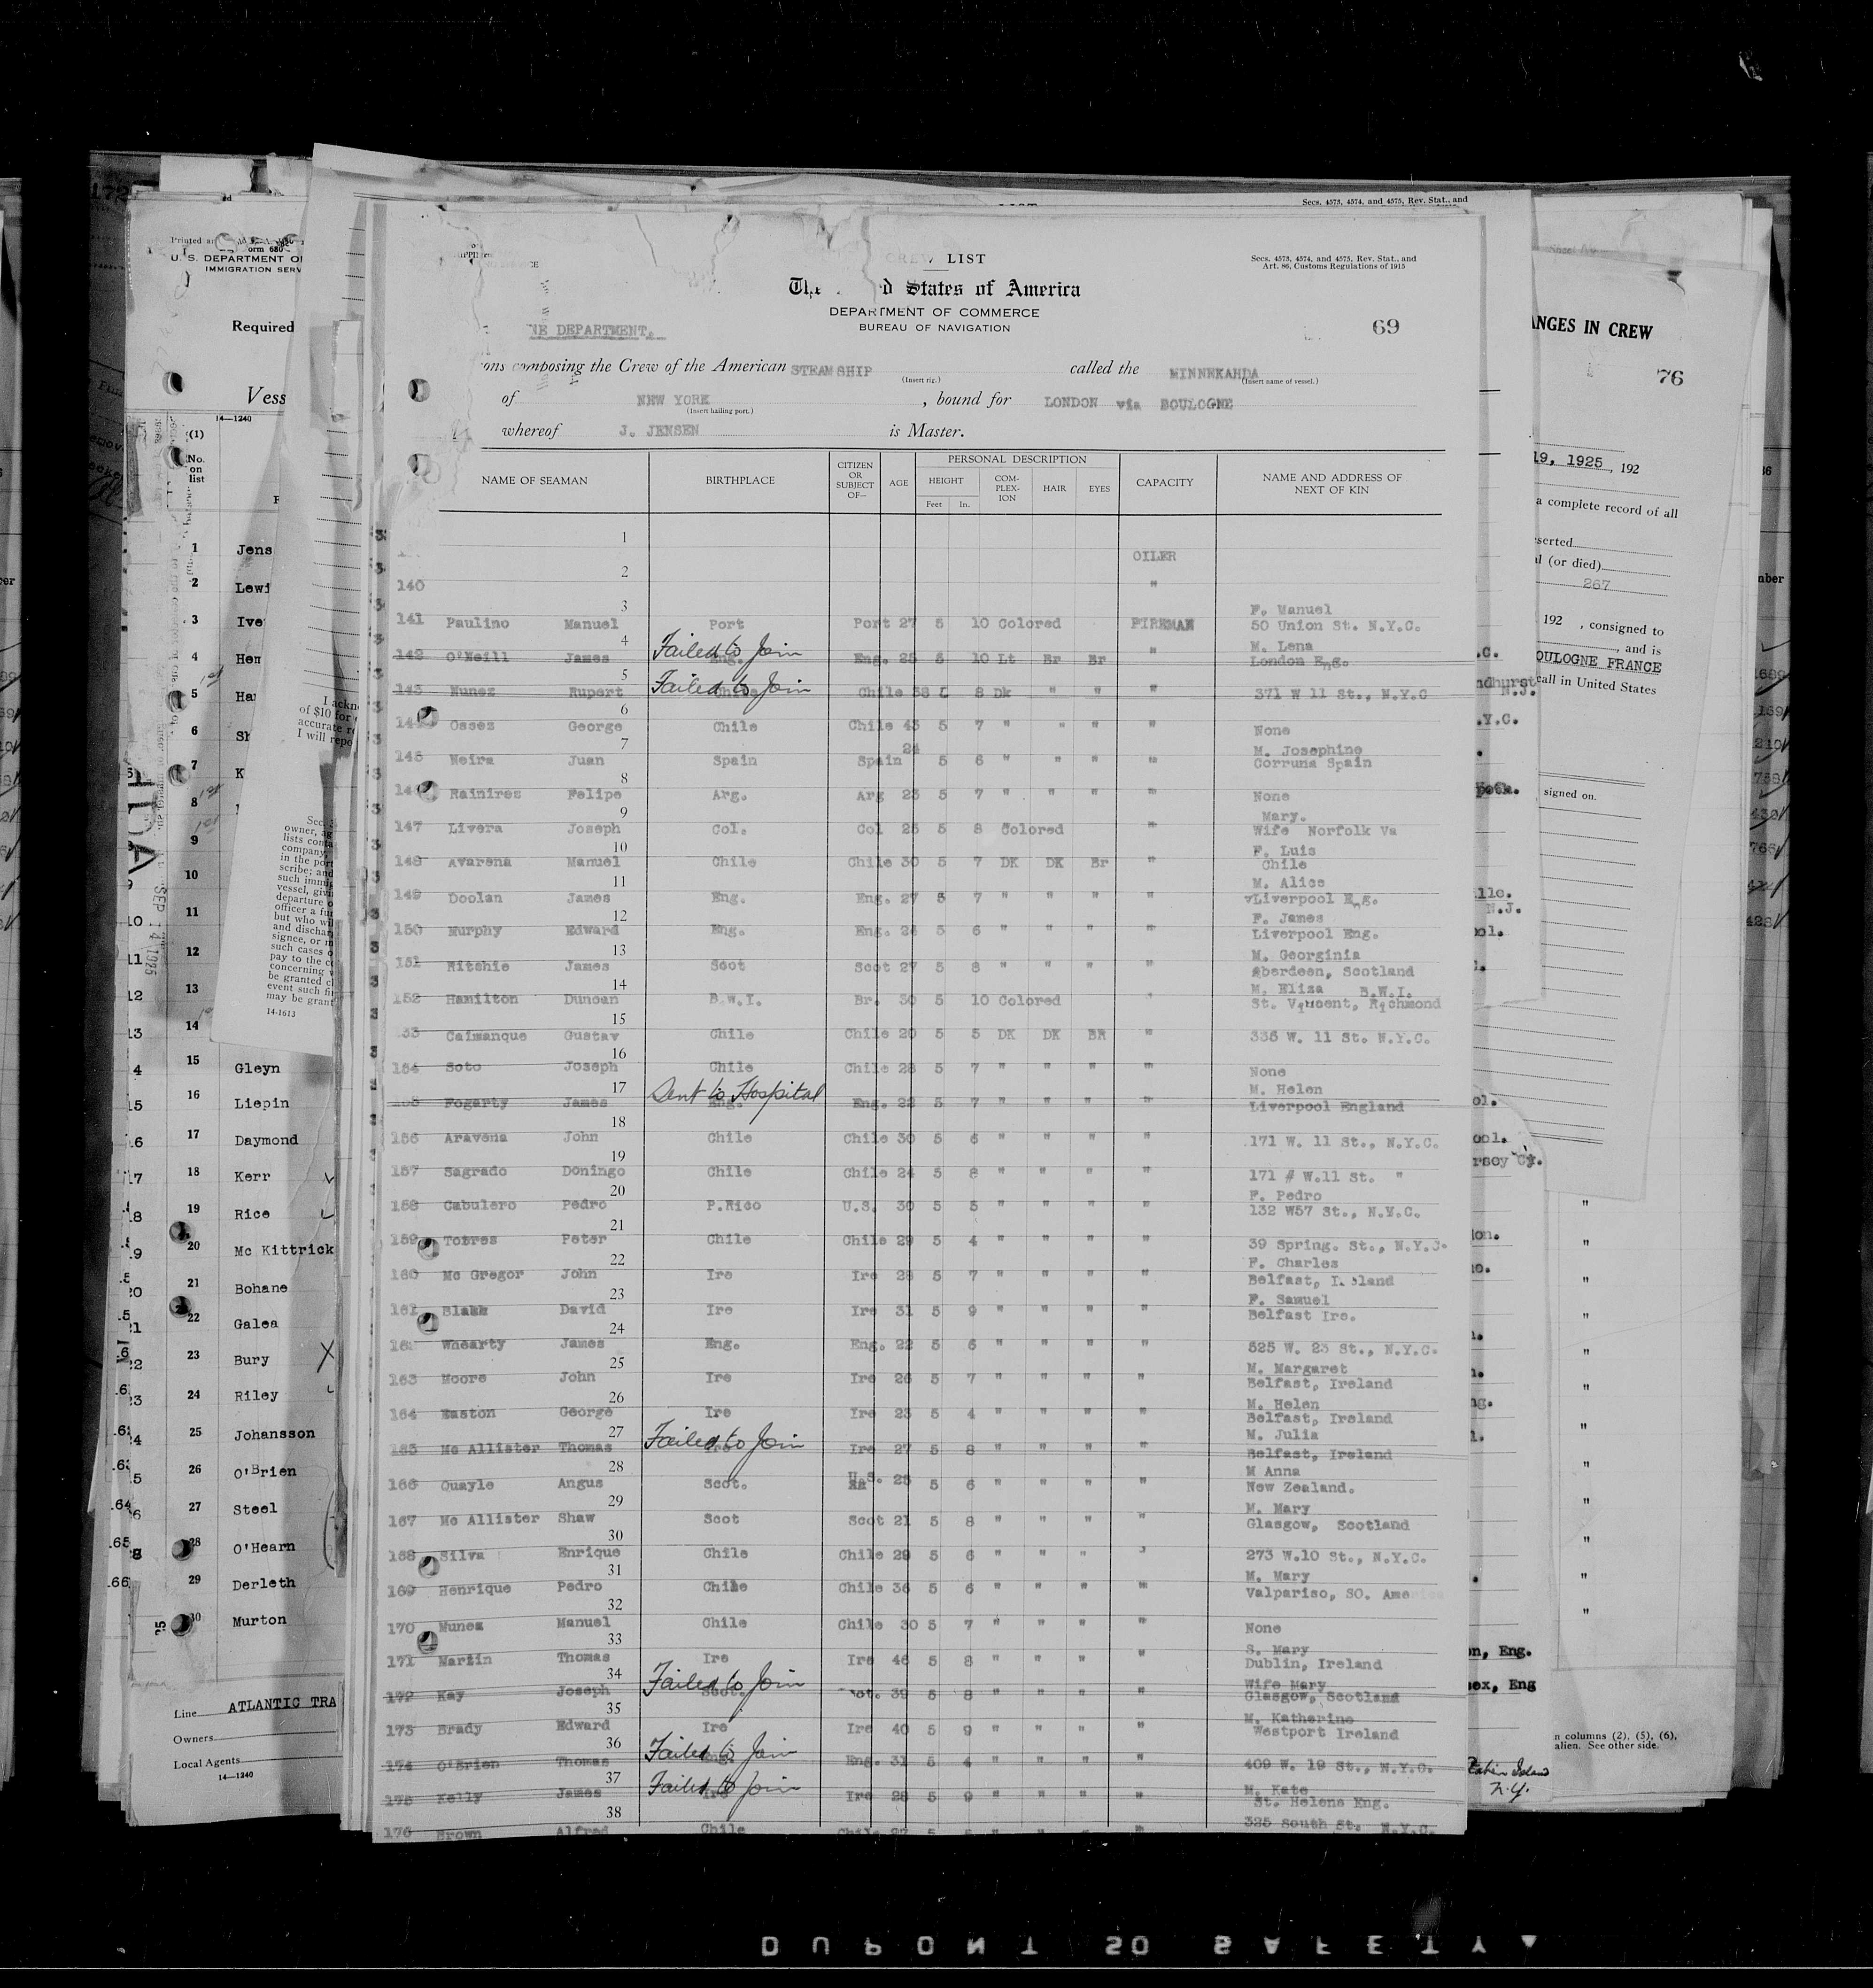 CREW LIST
Secs. 4573, 4574, and 4575, Rev. Stat., and
Art. 86, Customs Regulations of 1915
States of America
DEPARTMENT OF COMMERCE
BUREAU OF NAVIGATION
NE DEPARTMENT.
69
ons composing the Crew of the American STEAMSHIP called the MINNEKAHDA
(Insert rig.) (Insert name of vessel.)
of NEW YORK , bound for LONDON via BOULOGNE
(Insert hailing port.)
whereof J. JENSEN is Master.
NAME OF SEAMAN BIRTHPLACE CITIZEN OR SUBJECT OF— AGE PERSONAL DESCRIPTION CAPACITY NAME AND ADDRESS OF NEXT OF KIN
HEIGHT COM-PLEX-ION HAIR EYES
Feet In.
1 OILER
140 2 "
141 Paulino Manuel 3 Port Port 27 5 10 Colored FIREMAN F. Manuel 50 Union St. N.Y.C.
142 O'Neill James 4 Eng. Failed to Join Eng. 25 5 10 Lt Br Br " M. Lena London Eng.
143 Nunez Rupert 5 Chile Failed to Join Chile 38 5 8 Dk " " " 371 W 11 St., N.Y.C
Ossez George 6 Chile Chile 43 5 7 " " " " None
145 Neira Juan 7 Spain Spain 24 5 6 " " " " M. Josephine Corruna Spain
Rainirez Felipe 8 Arg. Arg 23 5 7 " " " " None
147 Livera Joseph 9 Col. Col 25 5 8 Colored " Mary. Wife Norfolk Va
148 Avarena Manuel 10 Chile Chile 30 5 7 DK DK Br " F. Luis Chile
149 Doolan James 11 Eng. Eng. 27 5 7 " " " " M. Alice Liverpool Eng.
150 Murphy Edward 12 Eng. Eng. 24 5 6 " " " " F. James Liverpool Eng.
151 Ritchie James 13 Scot Scot 27 5 8 " " " " M. Georginia Aberdeen, Scotland
152 Hamilton Duncan 14 B.W.I. Br. 30 5 10 Colored M. Eliza B.W.I. St. Vincent, Richmond
Caimanque Gustav 15 Chile Chile 20 5 5 DK DK BR " 336 W. 11 St. N.Y.C.
154 Soto Joseph 16 Chile Chile 28 5 7 " " " " None
Fogarty James 17 Eng. Sent to Hospital Eng. 22 5 7 " " " " M. Helen Liverpool England
156 Aravena John 18 Chile Chile 30 5 6 " " " " 171 W. 11 St., N.Y.C.
157 Sagrado Doningo 19 Chile Chile 24 5 8 " " " " 171 # W.11 St. "
158 Cabulero Pedro 20 P.Rico U.S. 30 5 5 " " " " F. Pedro 132 W57 St., N.Y.C.
159 Torres Peter 21 Chile Chile 29 5 4 " " " " 39 Spring. St., N.Y.C.
160 Mc Gregor John 22 Ire Ire 28 5 7 " " " " F. Charles Belfast, Ireland
161 David 23 Ire Ire 31 5 9 " " " " F. Samuel Belfast Ire.
Whearty James 24 Eng. Eng. 22 5 6 " " " " 525 W. 23 St., N.Y.C.
163 Moore John 25 Ire Ire 26 5 7 " " " " M. Margaret Belfast, Ireland
164 Easton George 26 Ire Ire 23 5 4 " " " " M. Helen Belfast, Ireland
165 Mc Allister Thomas 27 Ire Failed to Join Ire 27 5 8 " " " " M. Julia Belfast, Ireland
166 Quayle Angus 28 Scot. U.S. 5 6 " " " " M Anna New Zealand.
167 Mc Allister Shaw 29 Scot Scot 21 5 8 " " " " M. Mary Glasgow, Scotland
168 Silva Enrique 30 Chile Chile 29 5 6 " " " 273 W.10 St., N.Y.C.
169 Henrique Pedro 31 Chile Chile 36 5 6 " " " " M. Mary Valpariso, SO. Ame
170 Munez Manuel 32 Chile Chile 30 5 7 " " " " None
171 Martin Thomas 33 Ire Ire 46 5 8 " " " " S. Mary Dublin, Ireland
172 Kay Joseph 34 Scot. Failed to Join 39 5 8 " " " " Wife Mary Glasgow, Scotland
173 Brady Edward 35 Ire Ire 40 5 9 " " " " M. Katherine Westport Ireland
174 O'Brien Thomas 36 Eng. Failed to Join Eng. 31 5 4 " " " " 409 W. 19 St., N.Y.C.
175 Kelly James 37 Ire Failed to Join Ire 28 5 9 " " " " M. Kate St. Helens Eng.
176 Brown Alfred 38 Chile Chile 27 325 South St. N.Y.C.
U.S. DEPARTMENT OF
IMMIGRATION SERV
Required
Vess
14—1240
(1)
No.
on
list
1 Jens
2 Lewi
3 Ive
4 Hen
5 Ha
6 Sh
7 K
8
9
10
11
12
13
14
15 Gleyn
16 Liepin
17 Daymond
18 Kerr
19 Rice
20 Mc Kittrick
21 Bohane
22 Galea
23 Bury
24 Riley
25 Johansson
26 O'Brien
27 Steel
28 O'Hearn
29 Derleth
30 Murton
Line ATLANTIC TRA
Owners
Local Agents
14—1240
14-1613
SEP 14 1925
Secs. 4573, 4574, and 4575, Rev. Stat., and
ANGES IN CREW
76
19, 1925, 192
a complete record of all
serted
l (or died)
267
192 , consigned to
, and is
OULOGNE FRANCE
call in United States
signed on.
n columns (2), (5), (6),
alien. See other side.
N.Y.
DUPONT SO SAFETY